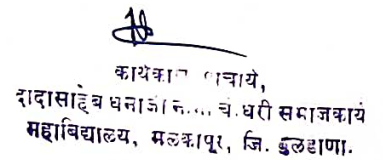 कार्यका
दादासाहेब धनाजी चौधरी समाजकार्य
महाविद्यालय, मलकापूर, जि. बुलडाणा.